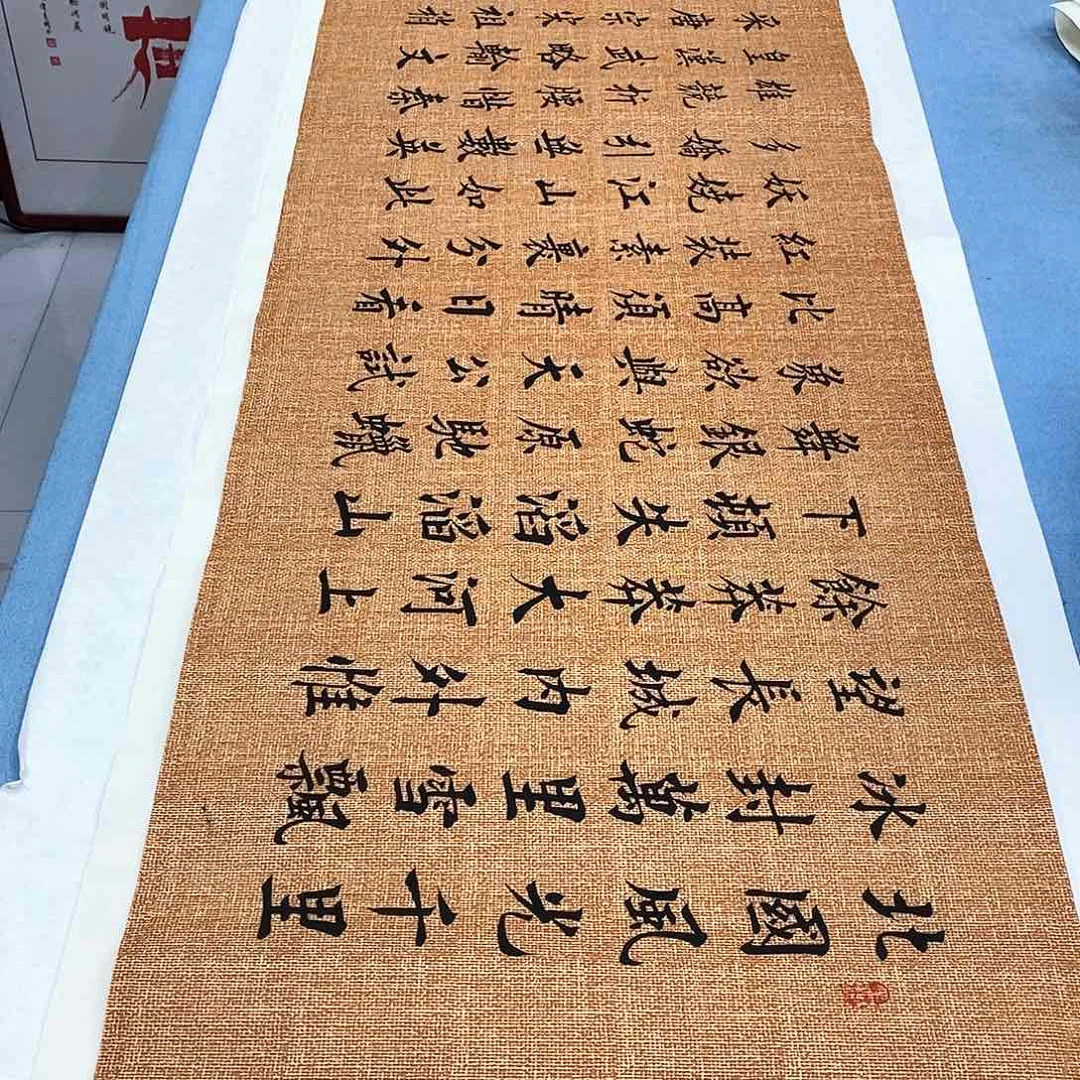 北國風光千里
冰封萬里雪飄
望長城內外惟
餘莽莽大河上
下頓失滔滔山
舞銀蛇原馳蠟
象欲與天公試
比高須晴日看
紅妝素裹分外
妖嬈江山如此
多嬌引無數英
雄競折腰惜秦
皇漢武略輸文
采唐宗宋祖稍